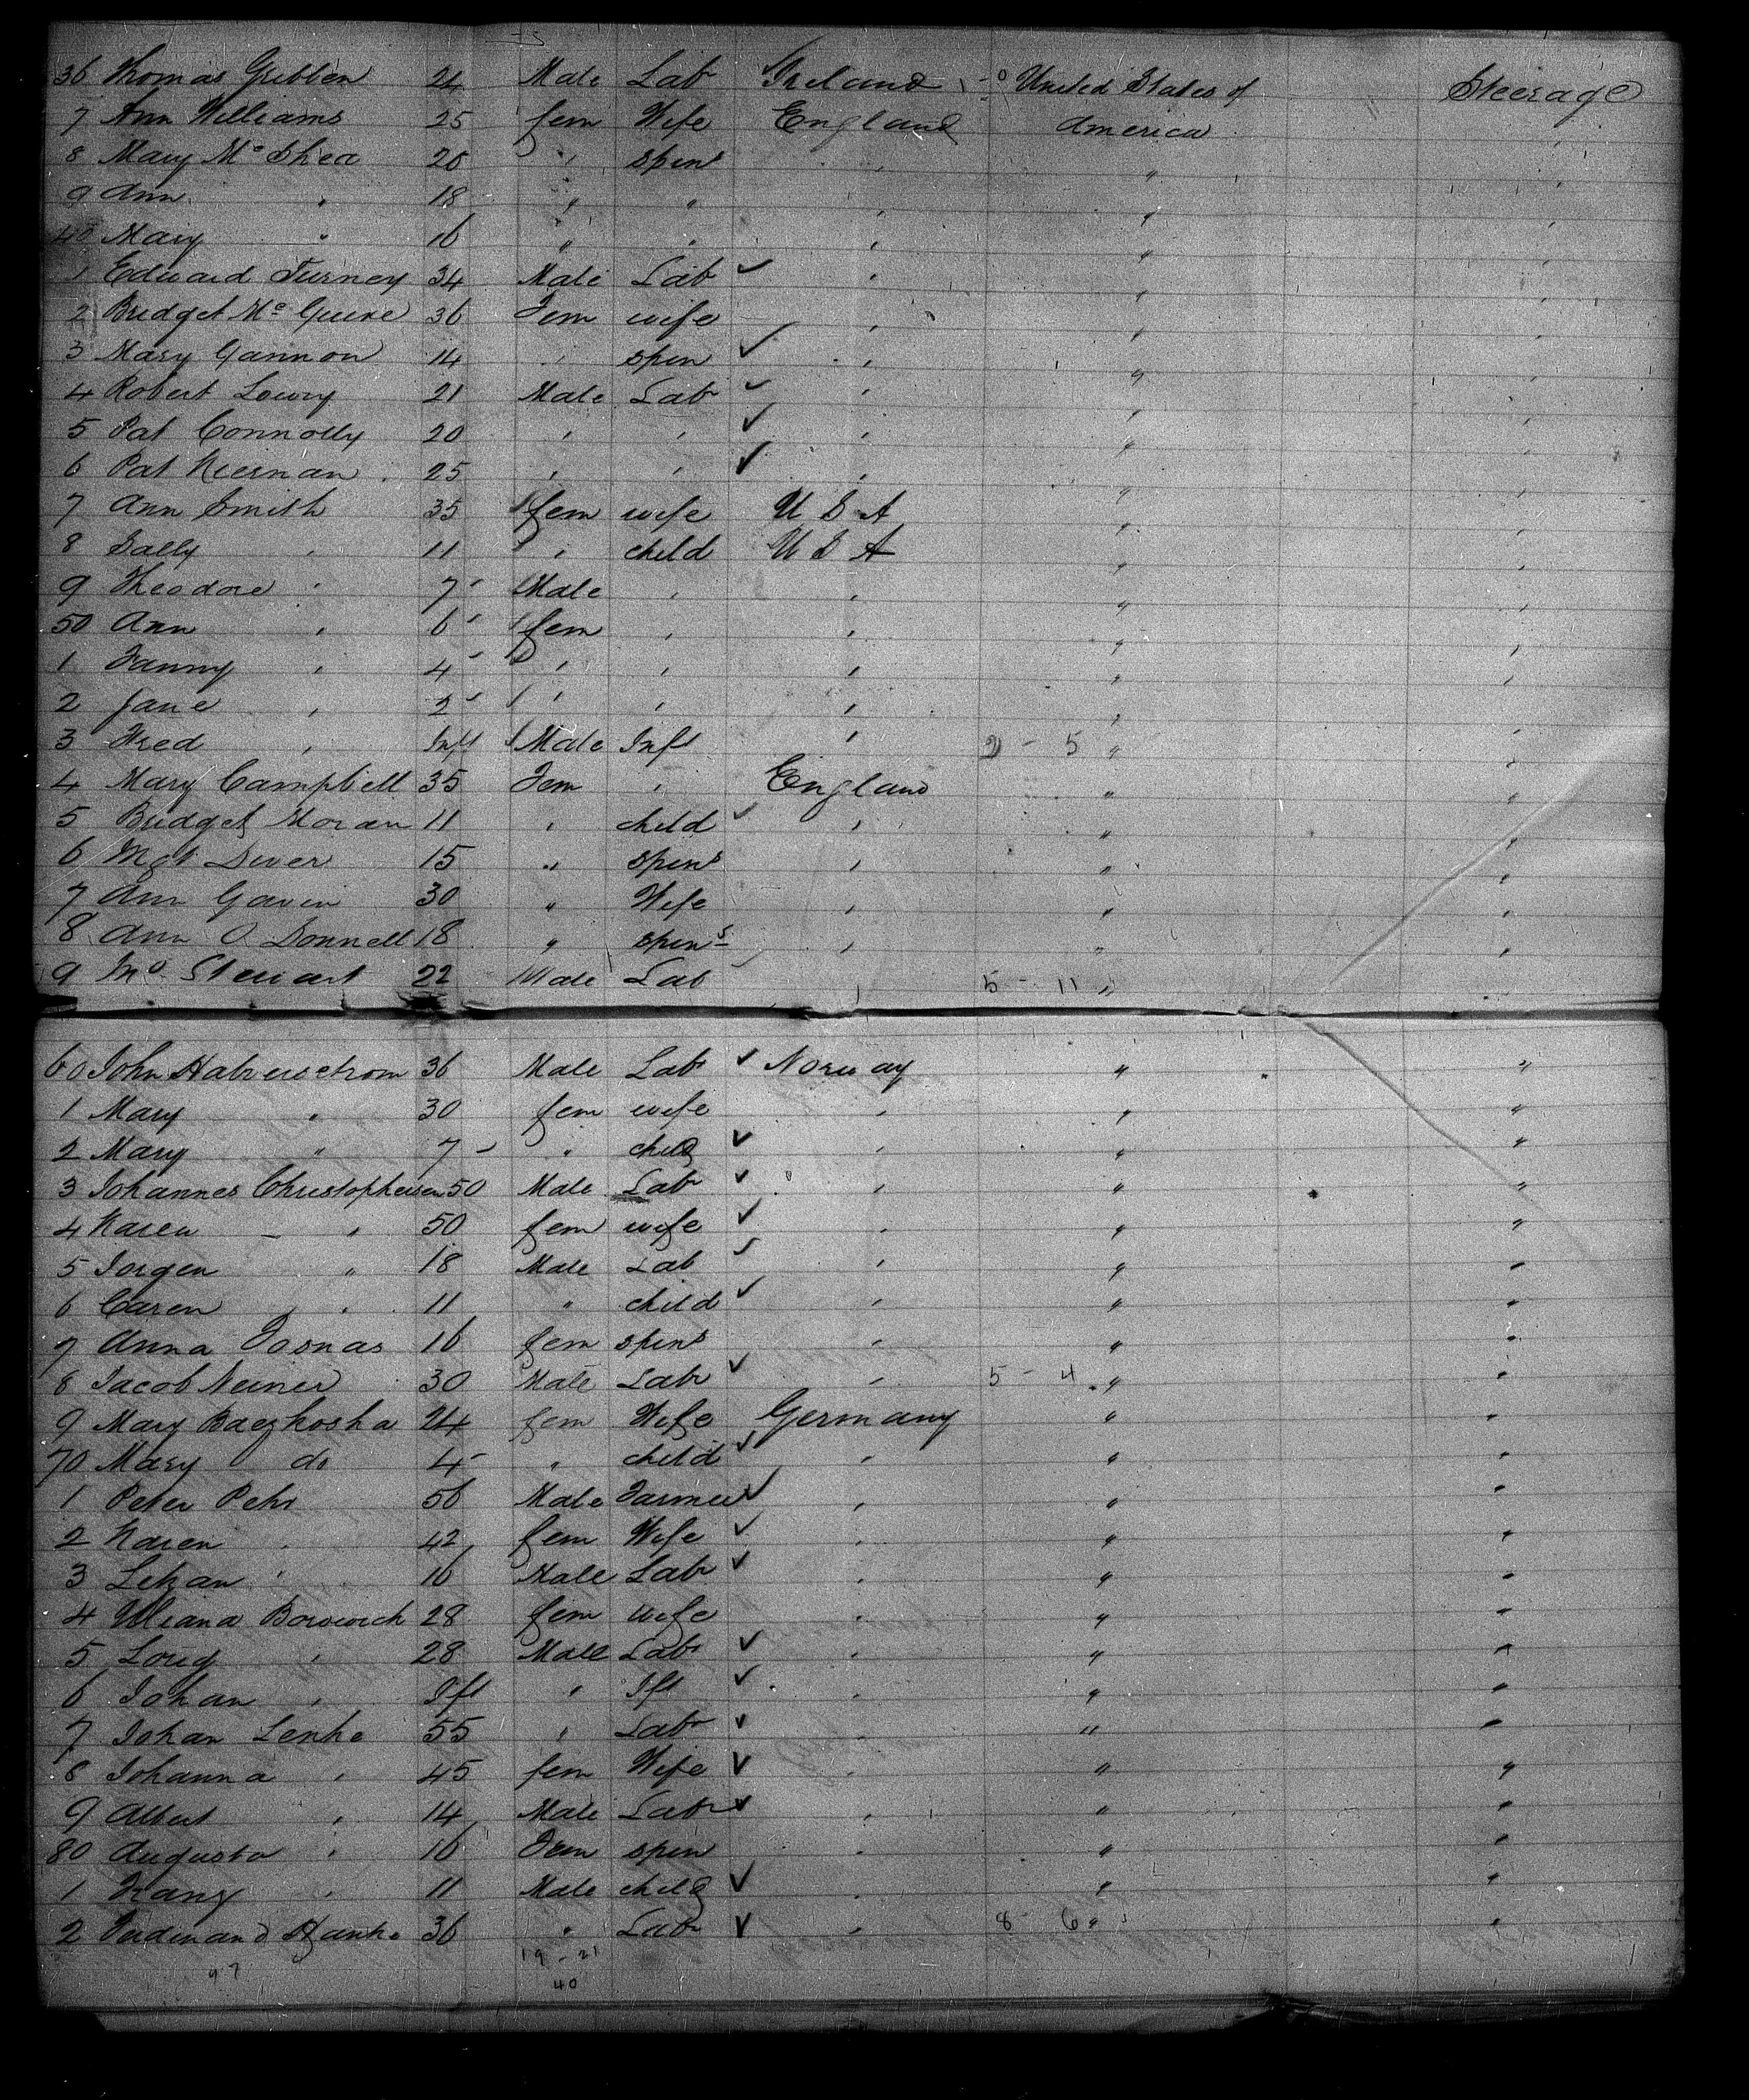 36 Thomas Gribben 24 Male Lab Ireland United States of Steerage
7 Ann Williams 25 fem Wife England America
8 Mary Mc Shea 20 " spins " " "
9 Ann " 18 " " " " "
40 Mary " 16 " " " " "
1 Edward Turney 34 Male Lab ✓ " " "
2 Bridget Mc Guire 36 Fem wife " " "
3 Mary Gannon 14 " spin ✓ " " "
4 Robert Lowry 21 Male Lab ✓ " " "
5 Pat Connolly 20 " " ✓ " " "
6 Pat Kiernan 25 " " ✓ " " "
7 Ann Smith 35 fem wife U S A " "
8 Sally " 11 " child U S A " "
9 Theodore " 7 Male " " " "
50 Ann " 6 fem " " " "
1 Fanny " 4 " " " " "
2 Jane " 2 " " " " "
3 Fred " Inft Male Inft " 2 - 5 " "
4 Mary Campbell 35 Fem " England " "
5 Bridget Moran 11 " child ✓ " " "
6 Mgt Diver 15 " spins " " "
7 Ann Gavin 30 " Wife " " "
8 Ann O Donnell 18 " spins " " "
9 Stewart 22 Male Lab " 5 - 11 " "
60 John 36 Male Lab ✓ Norway " "
1 Mary " 30 fem wife " " "
2 Mary " 7 " child ✓ " " "
3 Johannes Christophersen 50 Male Lab ✓ " " "
4 Karen " 50 fem wife ✓ " " "
5 Jorgen " 18 Male Lab ✓ " " "
6 Caren " 11 " child ✓ " " "
7 Anna 16 fem spins " " "
8 Jacob 30 Male Lab ✓ " 5 - 4 " "
9 Mary Baczkosha 24 fem Wife Germany " "
70 Mary do 4 " child ✓ " " "
1 Peter Pehr 56 Male Farmer ✓ " " "
2 Karen " 42 fem Wife ✓ " " "
3 " 16 Male Lab ✓ " " "
4 Borowich 28 fem wife " " "
5 " 28 Male Lab ✓ " " "
6 Johan " Ift " Ift ✓ " " "
7 Johan Lenke 55 " Lab ✓ " " "
8 Johanna " 45 fem Wife ✓ " " "
9 Albert " 14 Male Lab ✓ " " "
80 Augusta " 16 Fem spin " " "
1 Franz " 11 Male child ✓ " " "
2 Ferdinand 36 " Lab ✓ " 8 - 6 " "
97 19 - 21
40